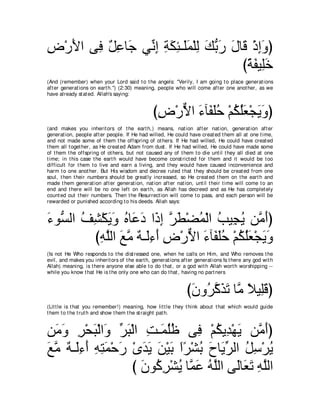 (وَإِذْ قَالَ رَبُّكَ لِلْمَلَـئِكَةِ إِنِّي جَاعِلٌ فِى الأَرْضِ
خَلِيفَةً)
(And (remember) when your Lord said to the angels: "Verily, I am going to place generations
after generations on earth.") (2:30) meaning, people who will come after one another, as we
have already stated. Allah's saying:
(وَيَجْعَلُكُمْ حُلَفَآءَ الاٌّرْضِ)
(and makes you inheritors of the earth,) means, nation after nation, generation after
generation, people after people. If He had willed, He could have created them all at one time,
and not made some of them the offspring of others. If He had willed, He could have created
them all together, as He created Adam from dust. If He had willed, He could have made some
of them the offspring of others, but not caused any of them to die until they all died at one
time; in this case the earth would have become constricted for them and it would be too
difficult for them to live and earn a living, and they would have caused inconvenience and
harm to one another. But His wisdom and decree ruled that they should be created from one
soul, then their numbers should be greatly increased, so He created them on the earth and
made them generation after generation, nation after nation, until their time will come to an
end and there will be no one left on earth, as Allah has decreed and as He has completely
counted out their numbers. Then the Resurrection will come to pass, and each person will be
rewarded or punished according to his deeds. Allah says:
(أَمَّن يُجِيبُ الْمُضْطَرَّ إِذَا دَعَاهُ وَيَكْشِفُ السُّوءَ
وَيَجْعَلُكُمْ حُلَفَآءَ الاٌّرْضِ أَءِلَـهٌ مَّعَ اللَّهِ)
(Is not He Who responds to the distressed one, when he calls on Him, and Who removes the
evil, and makes you inheritors of the earth, generations after generations Is there any god with
Allah) meaning, is there anyone else able to do that, or a god with Allah worth worshipping --
while you know that He is the only one who can do that, having no partners
(قَلِيلاً مَّا تَذَكَّرُونَ)
(Little is that you remember!) meaning, how little they think about that which would guide
them to the truth and show them the straight path.
(أَمَّن يَهْدِيكُمْ فِى ظُلُمَـتِ الْبَرِّ وَالْبَحْرِ وَمَن
يُرْسِلُ الرِّيَاحَ بُشْرًا بَيْنَ يَدَىْ رَحْمَتِهِ أَءِلَـهٌ مَّعَ
اللَّهِ تَعَالَى اللَّهُ عَمَّا يُشْرِكُونَ )